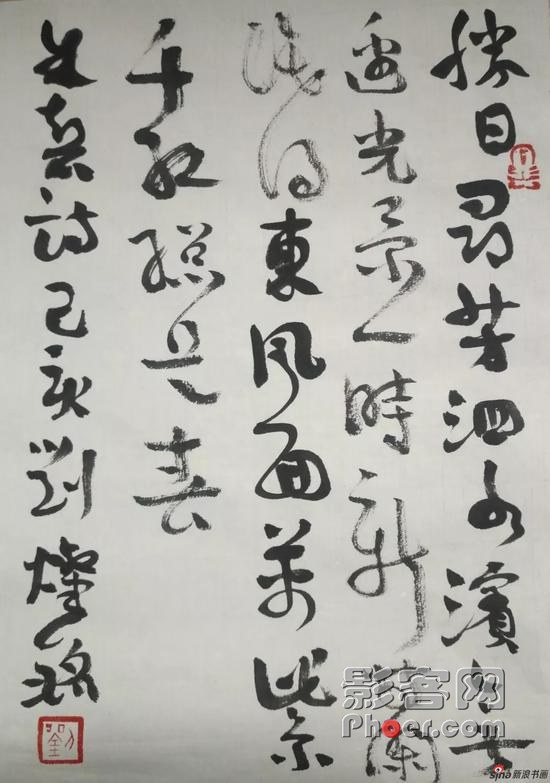 勝日尋芳泗水濱無
邊光景一時新等閑
識得東風面萬紫
千紅總是春
朱熹詩己亥劉燦銘
影客网
Phoer.com
sina新浪书画